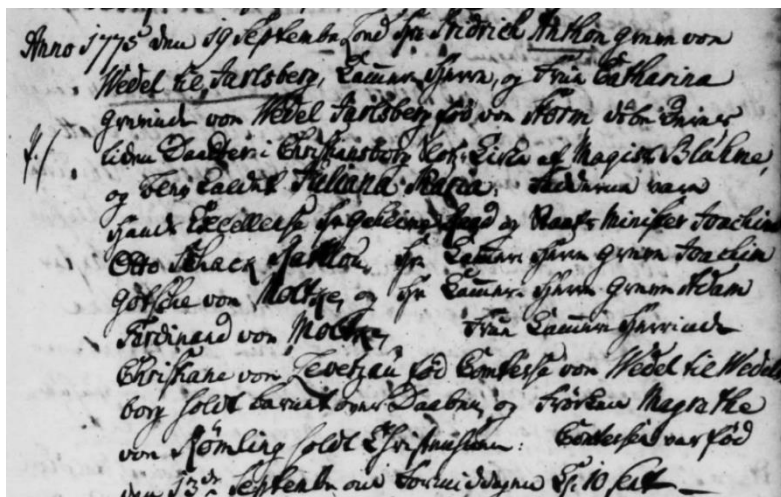 Anno 1775 den 19 Septembr Lood Hr Fridrich Anthon Greven von
Wedel til Jarlsberg, Cammer Herre, og Frue Catharina
Grevinde von Wedel Jarlsberg fød von Storm
liden Daatter i Christiansborg Slots Kirke af Magist. Bluhme,
og blev kaldet Juliana Maria. Fadderne vare
Hands Excellence Hr Geheime og Staats Minister Joachim
Otto Schack Rathlou, Hr Cammer Herre Greven Joachim
Godsche von Moltke, og Hr Cammer Herre Greven Adam
Ferdinand von Moltke, Frue Cammer Herrinde
Christiane von Levetzau fød Comtesse von Wedel til Wedels
borg holdt barnet over Daaben, og Frøken Magrethe
von Rømling holdt Christhuen. Comtessen var fød
den 13de Septembr om Formiddagen Kl. 10